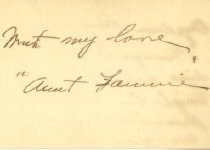 With my love
"Aunt Fannie"